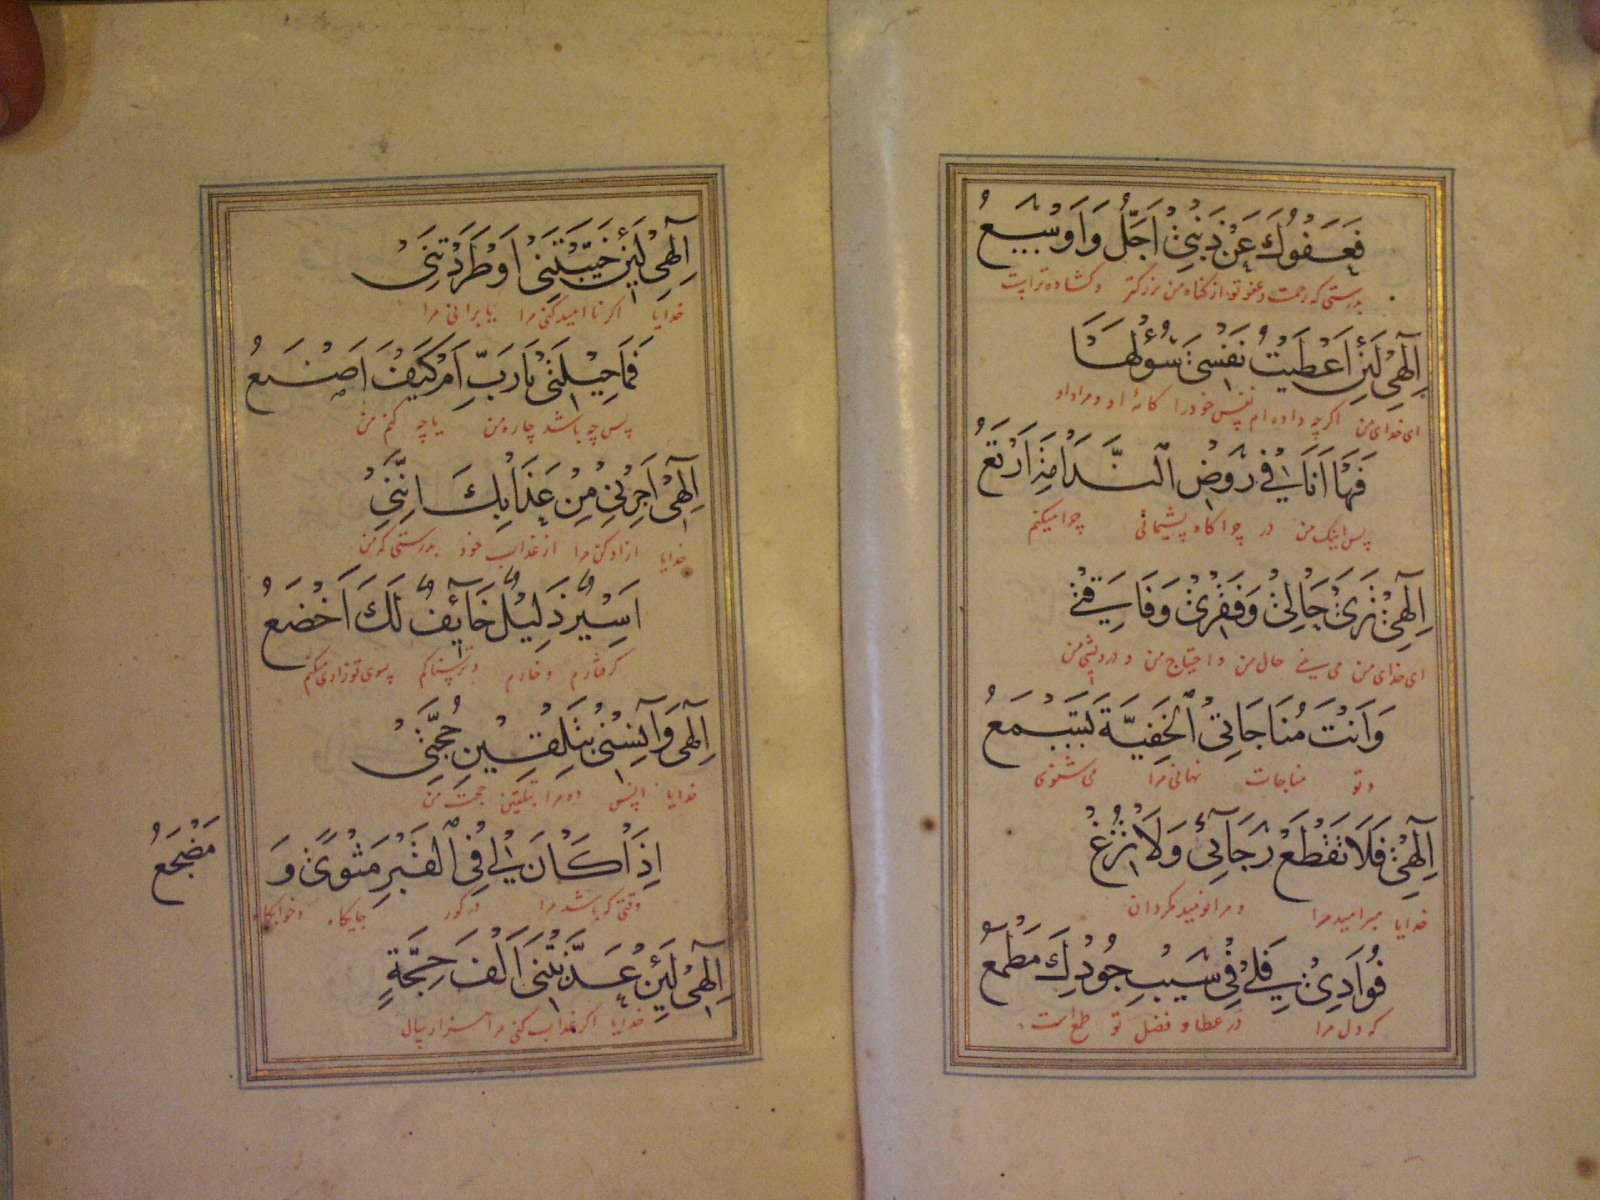 فَعَفْوُكَ عَنْ ذَنْبِي اَجَلُّ وَاَوْسَعُ
بدرستی که رحمت و عفو تو از کناه من بزرکتر و کشاده تر است
اِلٰهِي لَئِنْ اَعْطَيْتُ نَفْسِيَ سُؤْلَهَا
ای خدای من اکرچه داده ام نفس خود را
فَهَا اَنَا فِي رَوْضِ النَّدَامَةِ اَرْتَعُ
پس اینک من در چراکاه پشیمانی چرا میکنم
اِلٰهِي تَرَىٰ حَالِي وَفَقْرِي وَفَاقَتِي
ای خدای من می بینی حال من و احتیاج من و درویشی من
وَاَنْتَ مُنَاجَاتِي الْخَفِيَّةَ تَسْمَعُ
و تو مناجات نهانی مرا می شنوی
اِلٰهِي فَلَا تَقْطَعْ رَجَآئِي وَلَا تُزِغْ
خدایا مبر امید مرا و مرا نومید مکردان
فُوَادِي فَلِي فِي سَيْبِ جُودِكَ مَطْمَعُ
که دل مرا در عطا و فضل تو طمع است
اِلٰهِي لَئِنْ خَيَّبْتَنِي اَوْ طَرَدْتَنِي
خدایا اکر نا امید کنی مرا یا برانی مرا
فَمَا حِيلَتِي يَا رَبِّ اَمْ كَيْفَ اَصْنَعُ
پس چه باشد چاره من یا چه کنم من
اِلٰهِي اَجِرْنِي مِنْ عَذَابِكَ اِنَّنِي
خدایا ازاد کن مرا از عذاب خود بدرستی که من
اَسِيرٌ ذَلِيلٌ خَآئِفٌ لَكَ اَخْضَعُ
کرفتارم و خارم و ترسناکم بسوی تو زاری میکنم
اِلٰهِي وَآنِسْنِي بِتَلْقِينِ حُجَّتِي
خدایا انس ده مرا بتلقین حجت من
اِذَا كَانَ لِي فِي الْقَبْرِ مَثْوًى وَ مَضْجَعُ
وقتی که باشد مرا در کور جایکاه و خوابکاه
اِلٰهِي لَئِنْ عَذَّبْتَنِي اَلْفَ حِجَّةٍ
خدایا اکر عذاب کنی مرا هزار سال